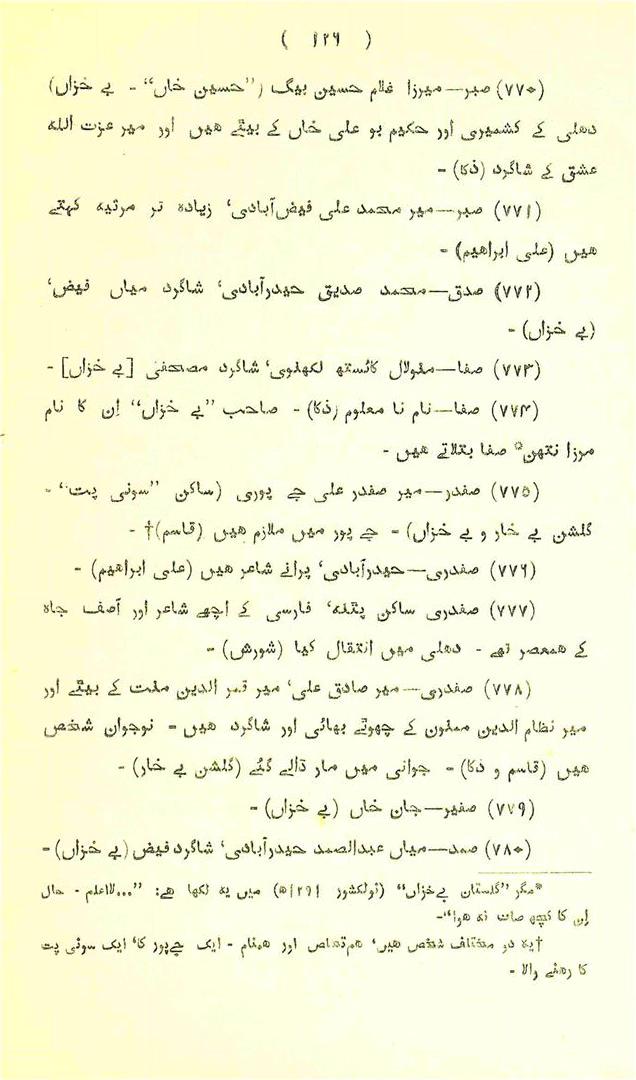 ( ۱۲۶ )
(۷۷۰) صبر—میرزا غلام حسین بیگ (”حسین خاں“ - بے خزاں)
دھلی کے کشمیری اور حکیم بو علی خاں کے بیٹے ھیں اور میر عزت اللہ
عشق کے شاگرد (ذکا) -
(۷۷۱) صبر—میر محمد علی فیض‌آبادی‘ زیادہ تر مرثیہ کہتے
ھیں (علی ابراھیم) -
(۷۷۲) صدق—محمد صدیق حیدرآبادی‘ شاگرد میاں فیض‘
(بے خزاں) -
(۷۷۳) صفا—منولال کائستھ لکھنوی‘ شاگرد مصحفی [بے خزاں] -
(۷۷۴) صفا—نام نا معلوم (ذکا) - صاحب ”بے خزاں“ اِن کا نام
مرزا نتھن* صفا بتلاتے ھیں -
(۷۷۵) صفدر—میر صفدر علی جے پوری (ساکن ”سونی پت“ -
گلشن بے خار و بے خزاں) - جے پور میں ملازم ھیں (قاسم)† -
(۷۷۶) صفدری—حیدرآبادی‘ پرانے شاعر ھیں (علی ابراھیم) -
(۷۷۷) صفدری ساکن پٹنہ‘ فارسی کے اچھے شاعر اور آصف جاہ
کے ھمعصر تھے - دھلی میں انتقال کیا (شورش) -
(۷۷۸) صفدری—میر صادق علی‘ میر قمر الدین منت کے بیٹے اور
میر نظام الدین ممنون کے چھوٹے بھائی اور شاگرد ھیں - نوجوان شخص
ھیں (قاسم و ذکا) - جوانی میں مار ڈالے گئے (گلشن بے خار) -
(۷۷۹) صفیر—جان خاں (بے خزاں) -
(۷۸۰) صمد—میاں عبدالصمد حیدرآبادی‘ شاگرد فیض (بے خزاں) -
*مگر ”گلستان بےخزاں“ (نولکشور ۱۲۹۱ھ) میں یہ لکھا ھے: ”...لااعلم - حال
اِن کا کچھ صاف نہ ھوا“-
†یہ دو مختلف شخص ھیں‘ ھم‌تخلص اور ھمنام - ایک جےپور کا‘ ایک سونی پت
کا رھنے والا -